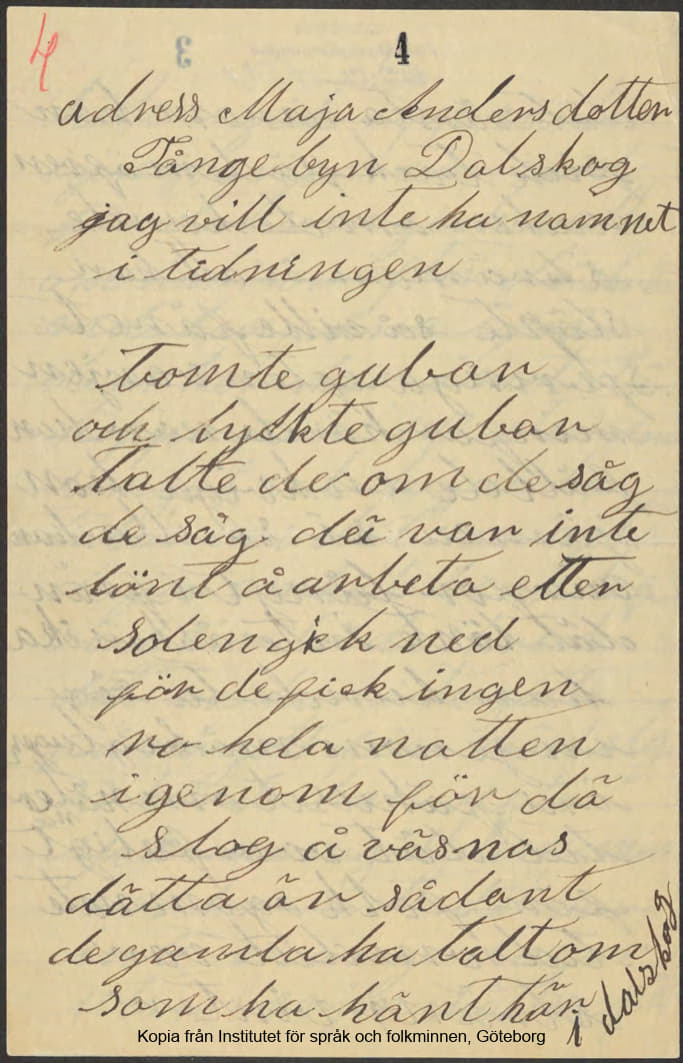 4
4
adress Maja Andersdotter
Tångebyn Dalskog
jag vill inte ha namnet
i tidningen
tomte gubar
och lycktegubar
talte de om de såg
de såg dei var inte
lönt å arbeta etter
solen gick ned
för de fick ingen
ro hela natten
igenom för dä
slog å väsnas
dätta är sådant
de gamla ha talt om
som ha hänt här
i dalskog
Kopia från Institutet för språk och folkminnen, Göteborg